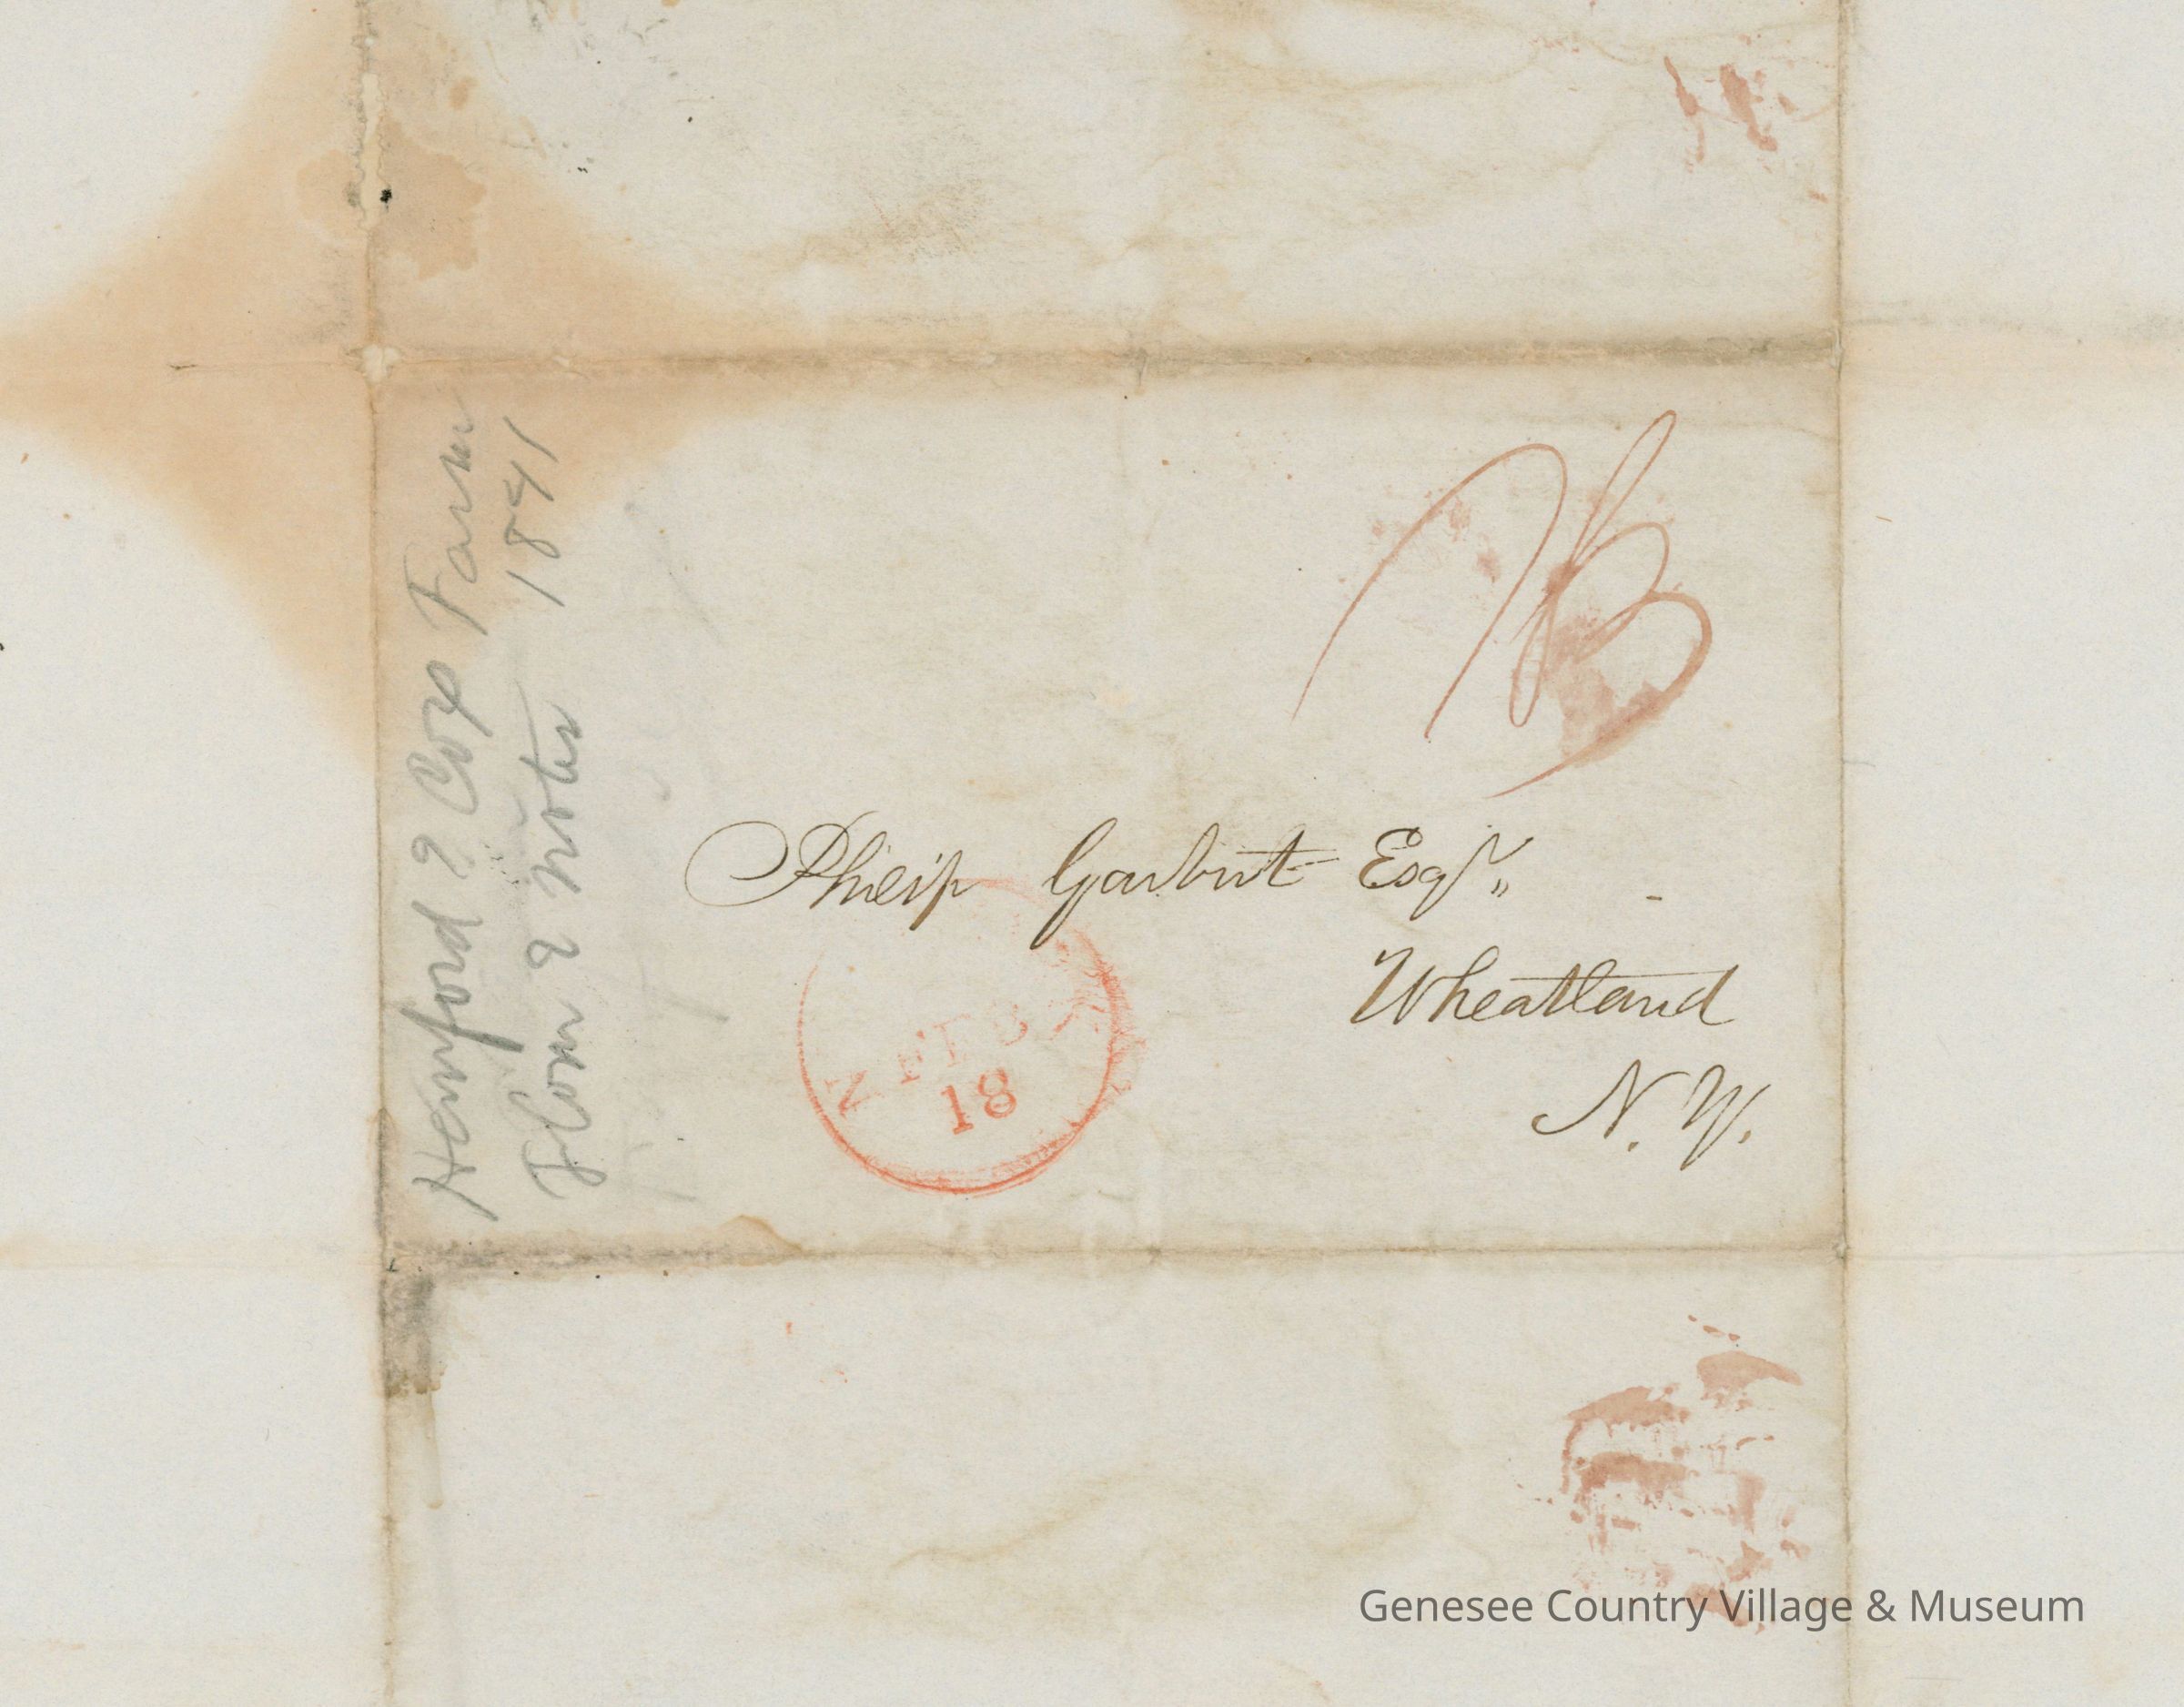 Hanford & Cox Farm
Flour & Notes 1841
Philip Garbutt Esqr
Wheatland
N. Y.
18
Genesee Country Village & Museum